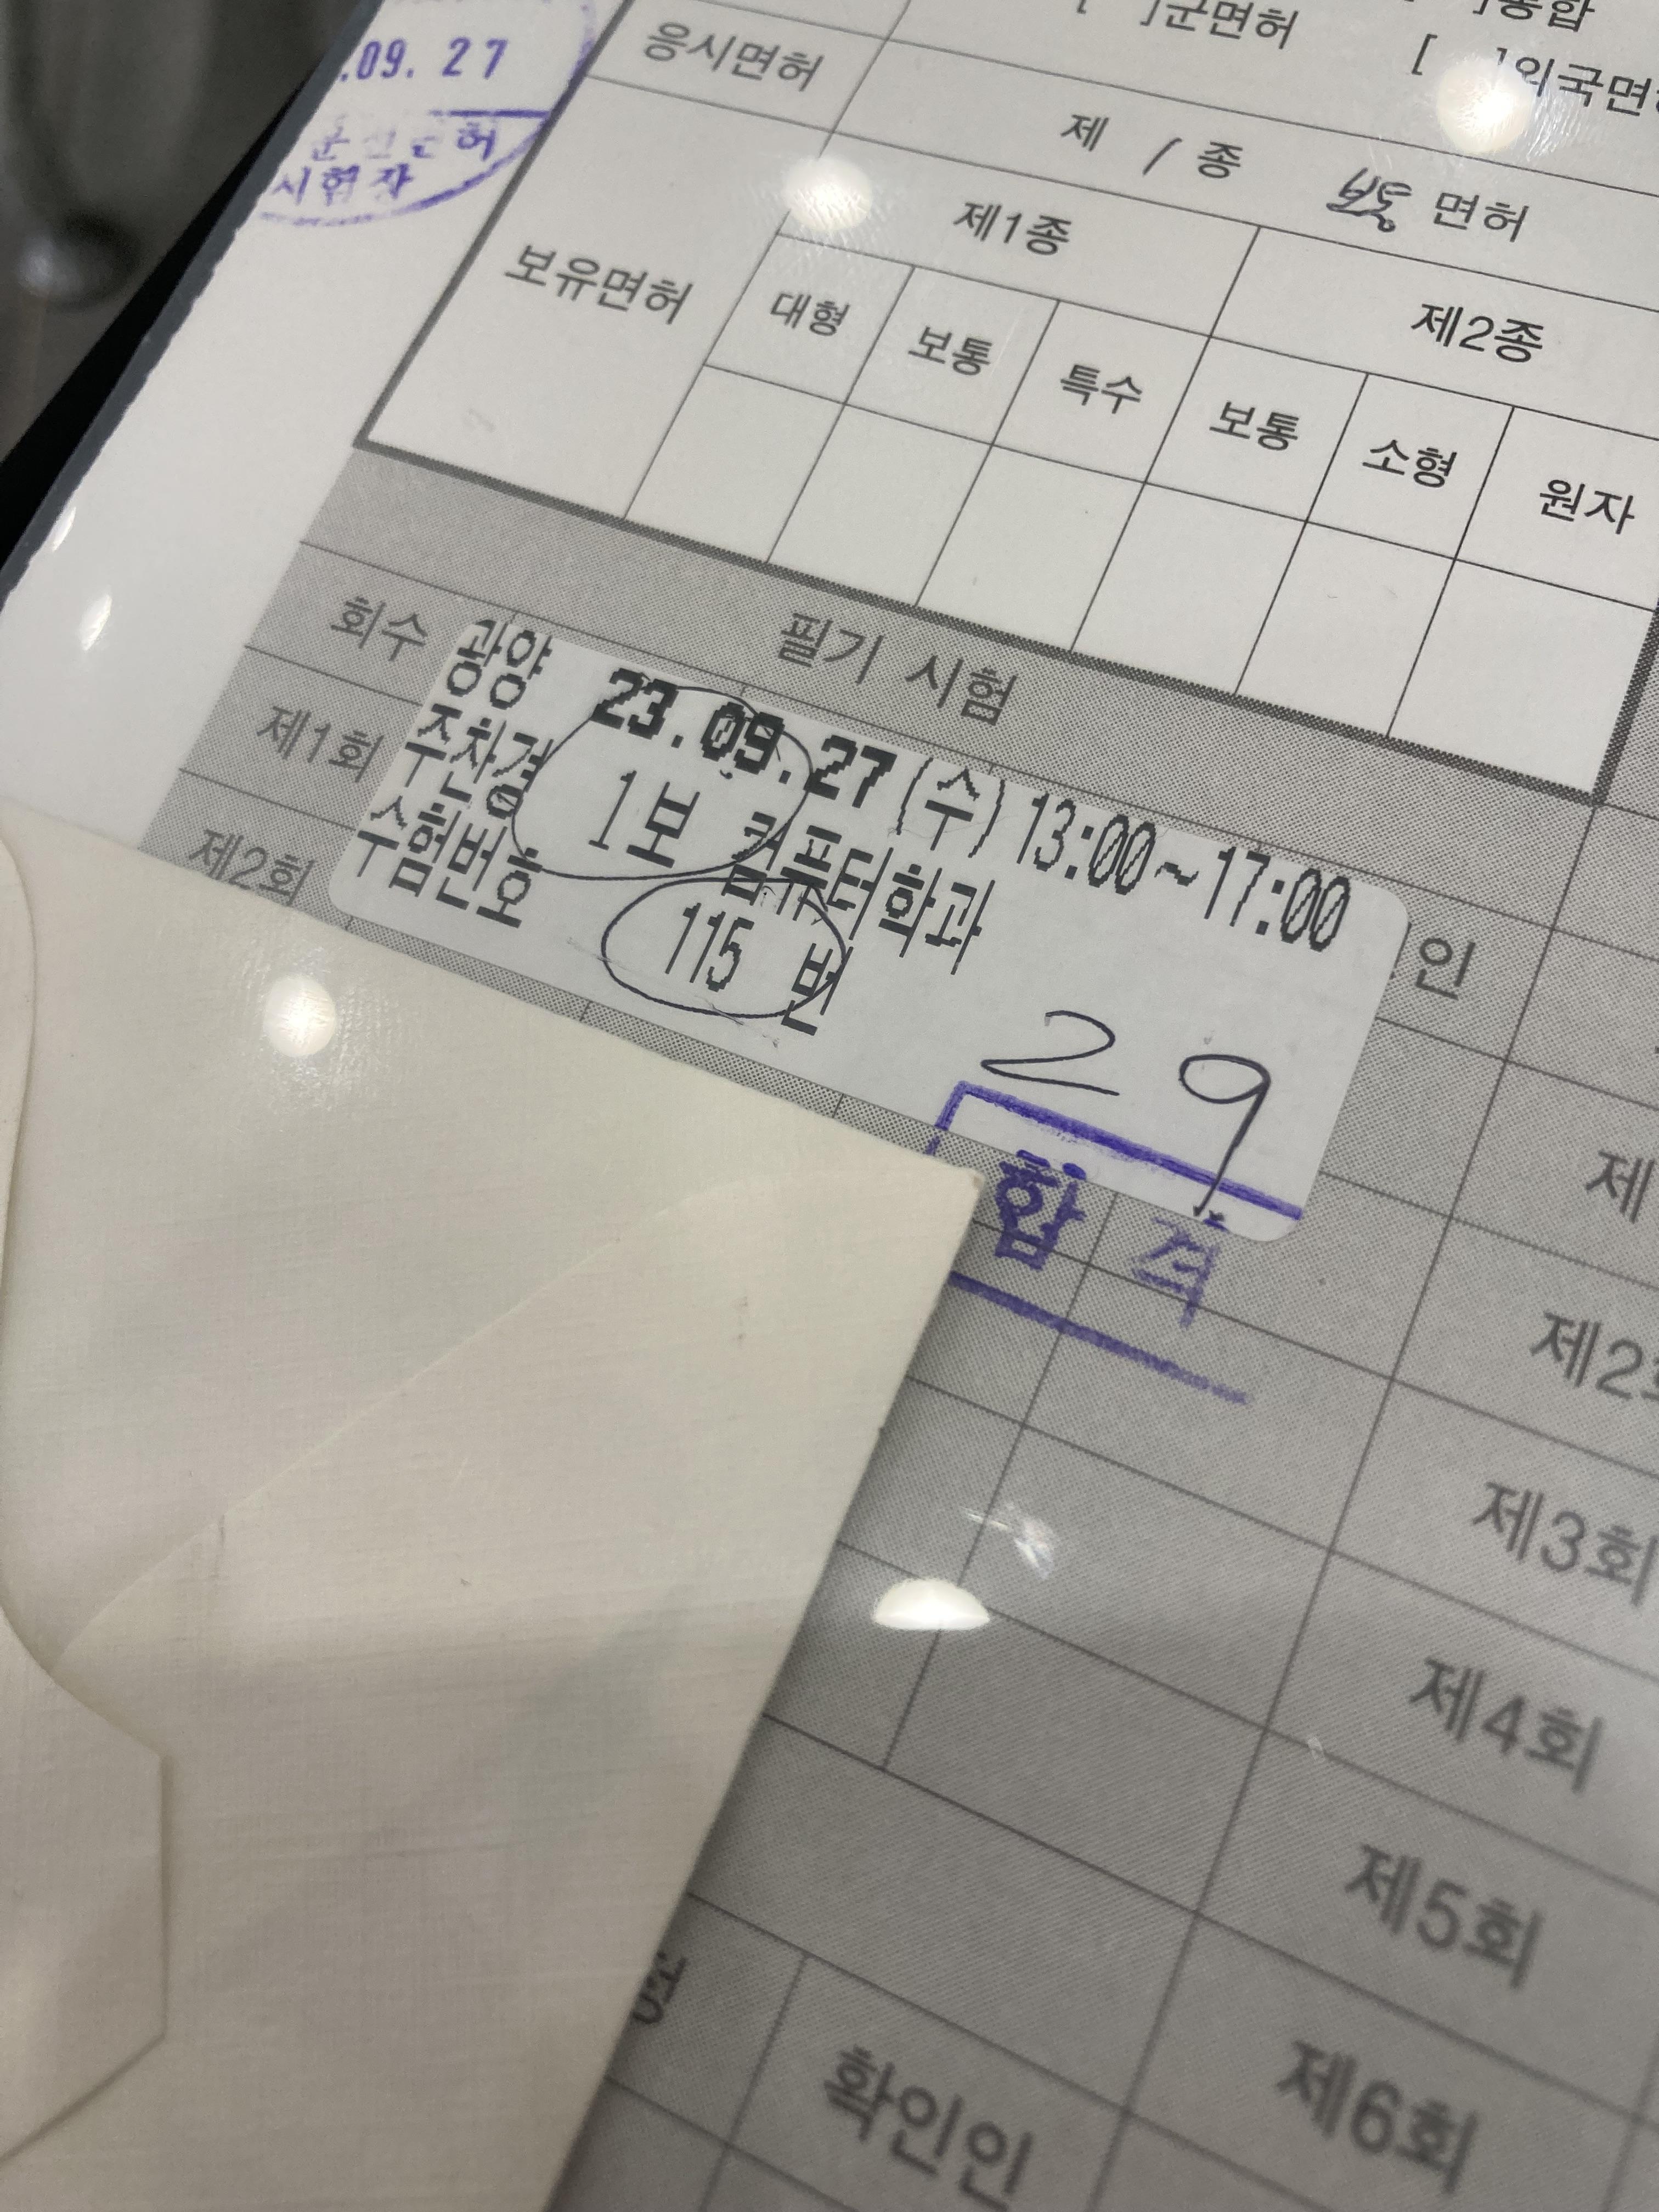 .09. 27
운전면허
시험장
]군면허 [ ]통합
[ ]외국면허
응시면허
제 1 종 보통 면허
보유면허
제1종
제2종
대형 보통 특수 보통 소형 원자
필기 시험
회수
제1회
제2회
광양 23.09.27(수)13:00~17:00
주찬경 1보 컴퓨터학과
수험번호 115 번
29
합격
인
제
제2회
제3회
제4회
제5회
제6회
확인인